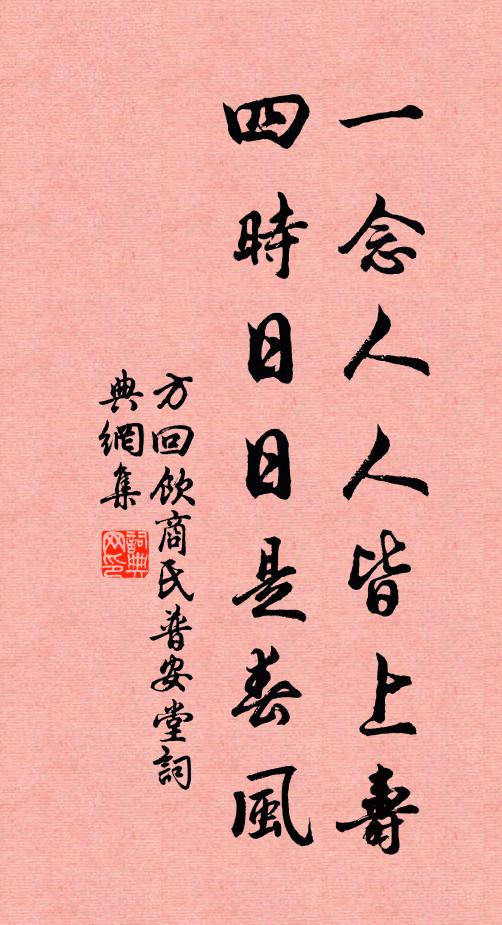 一念人人皆上壽
四時日日是春風
方回飲商氏普安堂詞
典網集
詞典
网印